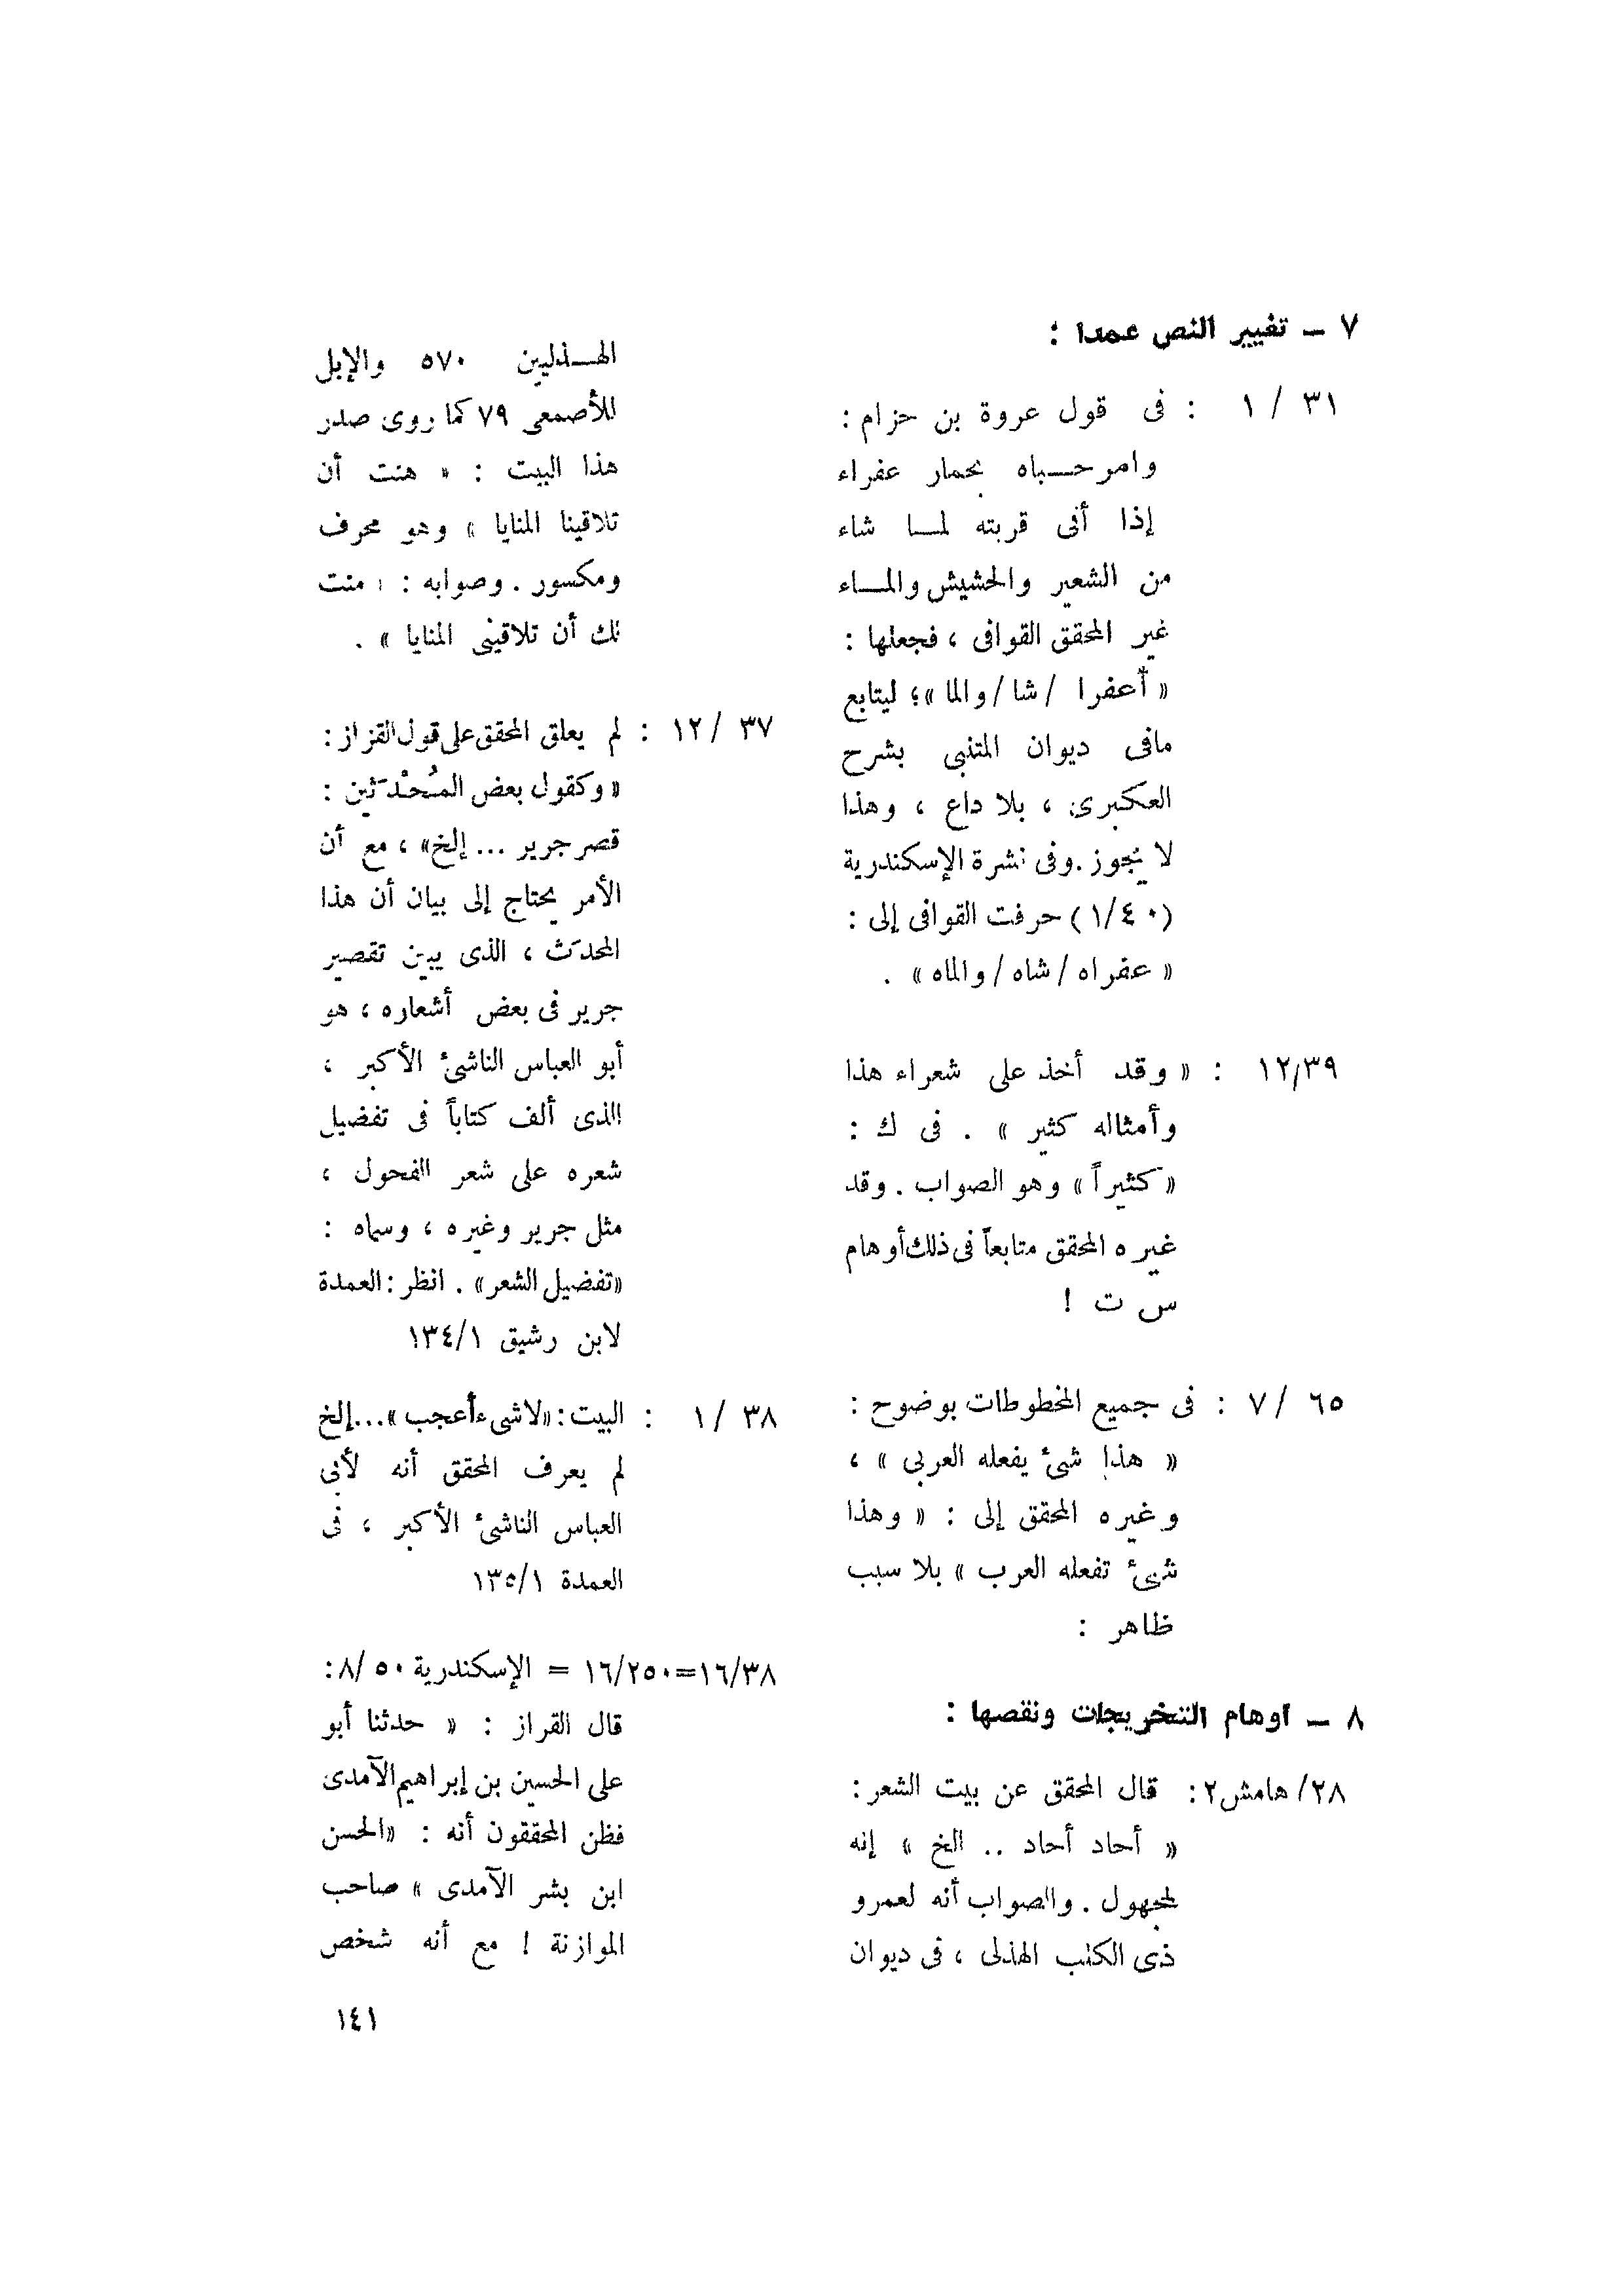 ٧ – تغيير النص عمدا :
٣١ / ١ : فى قول عروة بن حزام :
وامرحـــباه بحمار عفراء
إذا أتى قربته لمـــا شاء
من الشعير والحشيش والمـــاء
غير المحقق القوافى ، فجعلها :
« أعفرا / شا / والما » ؛ ليتابع
مافى ديوان المتنبى بشرح
العكبرى ، بلا داع ، وهذا
لا يجوز . وفى نشرة الإسكندرية
(١/٤٠) حرفت القوافى إلى :
« عفراه / شاه / والماه » .
١٢/٣٩ : « وقد أخذ على شعراء هذا
وأمثاله كثير » . فى ك :
« كثيراً » وهو الصواب . وقد
غيره المحقق متابعاً فى ذلك أوهام
س ت !
٦٥ / ٧ : فى جميع المخطوطات بوضوح :
« هذا شىء يفعله العربى » ،
وغيره المحقق إلى : « وهذا
شىء تفعله العرب » بلا سبب
ظاهر :
٨ – أوهام التخريجات ونقصها :
٢٨/ هامش ٢ : قال المحقق عن بيت الشعر :
« أحاد أحاد .. الخ » إنه
لمجهول . والصواب أنه لعمرو
ذى الكلب الهذلى ، فى ديوان
الهـــذليين ٥٧٠ والإبل
للأصمعى ٧٩ كما روى صدر
هذا البيت : « هنت أن
تلاقينا المنايا » وهو محرف
ومكسور . وصوابه : « منت
لك أن تلاقينى المنايا » .
٣٧ / ١٢ : لم يعلق المحقق على قول القزاز :
« وكقول بعض المُحْدَثين :
قصر جرير ... إلخ» ، مع أن
الأمر يحتاج إلى بيان أن هذا
المحدَث ، الذى يبين تقصير
جرير فى بعض أشعاره ، هو
أبو العباس الناشئ الأكبر ،
الذى ألف كتاباً فى تفضيل
شعره على شعر الفحول ،
مثل جرير وغيره ، وسماه :
«تفضيل الشعر» . انظر : العمدة
لابن رشيق ١٣٤/١
٣٨ / ١ : البيت : «لاشىء أعجب »...إلخ
لم يعرف المحقق أنه لأبى
العباس الناشئ الأكبر ، فى
العمدة ١٣٥/١
١٦/٣٨=١٦/٢٥٠ = الإسكندرية ٨/٥٠ :
قال القزاز : « حدثنا أبو
على الحسين بن إبراهيم الآمدى
فظن المحققون أنه : «الحسن
ابن بشر الآمدى » صاحب
الموازنة ! مع أنه شخص
١٤١